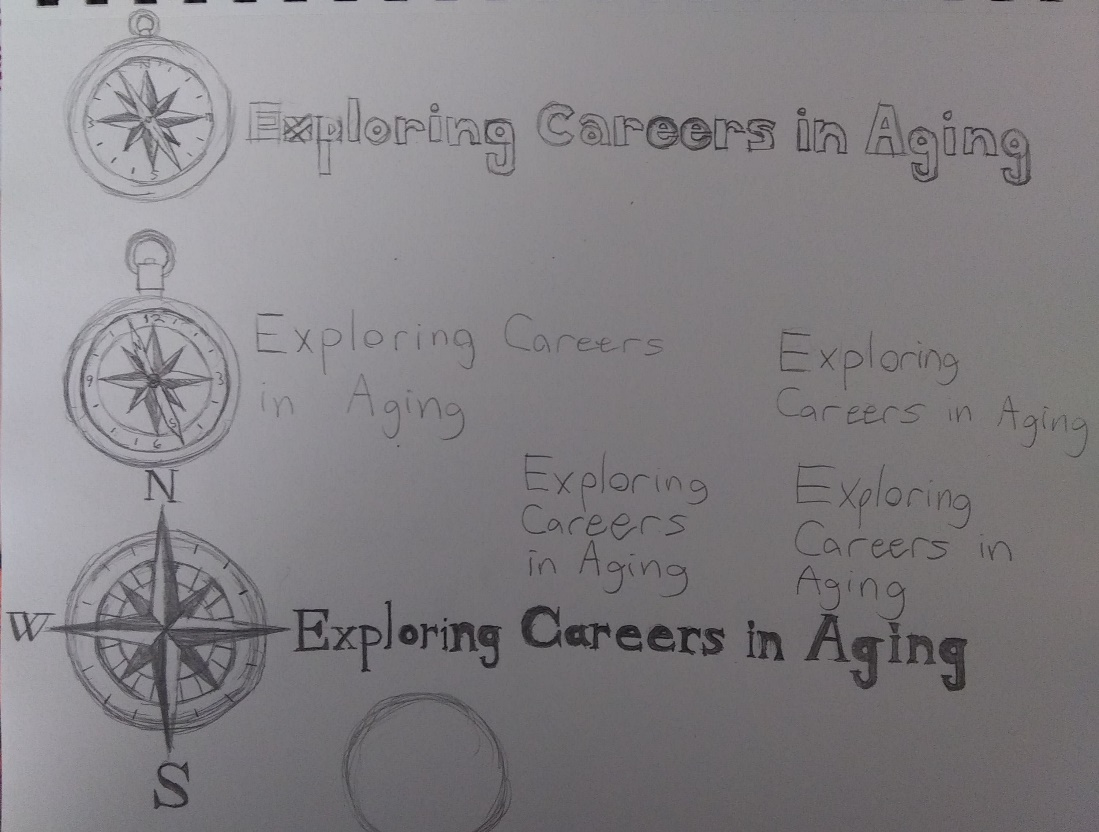 Exploring Careers in Aging
12
9 3
6
Exploring Careers
in Aging
Exploring
Careers in Aging
Exploring
Careers
in Aging
Exploring
Careers in
Aging
N
W
Exploring Careers in Aging
S